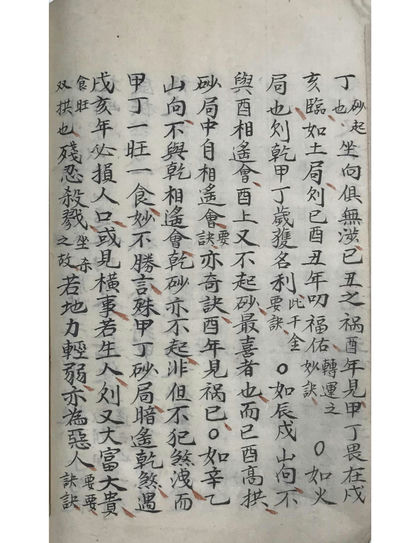 丁砂起也坐向俱無涉已丑之禍酉年見甲丁畏在戌
亥臨如土局则已酉丑年叨福佑轉運之妙訣○如火
局也则乾甲丁歲獲名利此千金要訣○如辰戌山向不
與酉相遙會酉上又不起砂最喜者也而已酉高拱
砂局中自相遙會要訣亦奇訣酉年見禍已○如辛乙
山向不與乾相遙會乾砂亦不起非但不犯煞洩而
甲丁一旺一食妙不勝言殊甲丁砂局暗遙乾煞遇
戌亥年必損人口或見橫事若生人则又大富大貴
食旺双拱也殘忍殺戮坐杀之故若地力輕弱亦為惡人要訣要訣